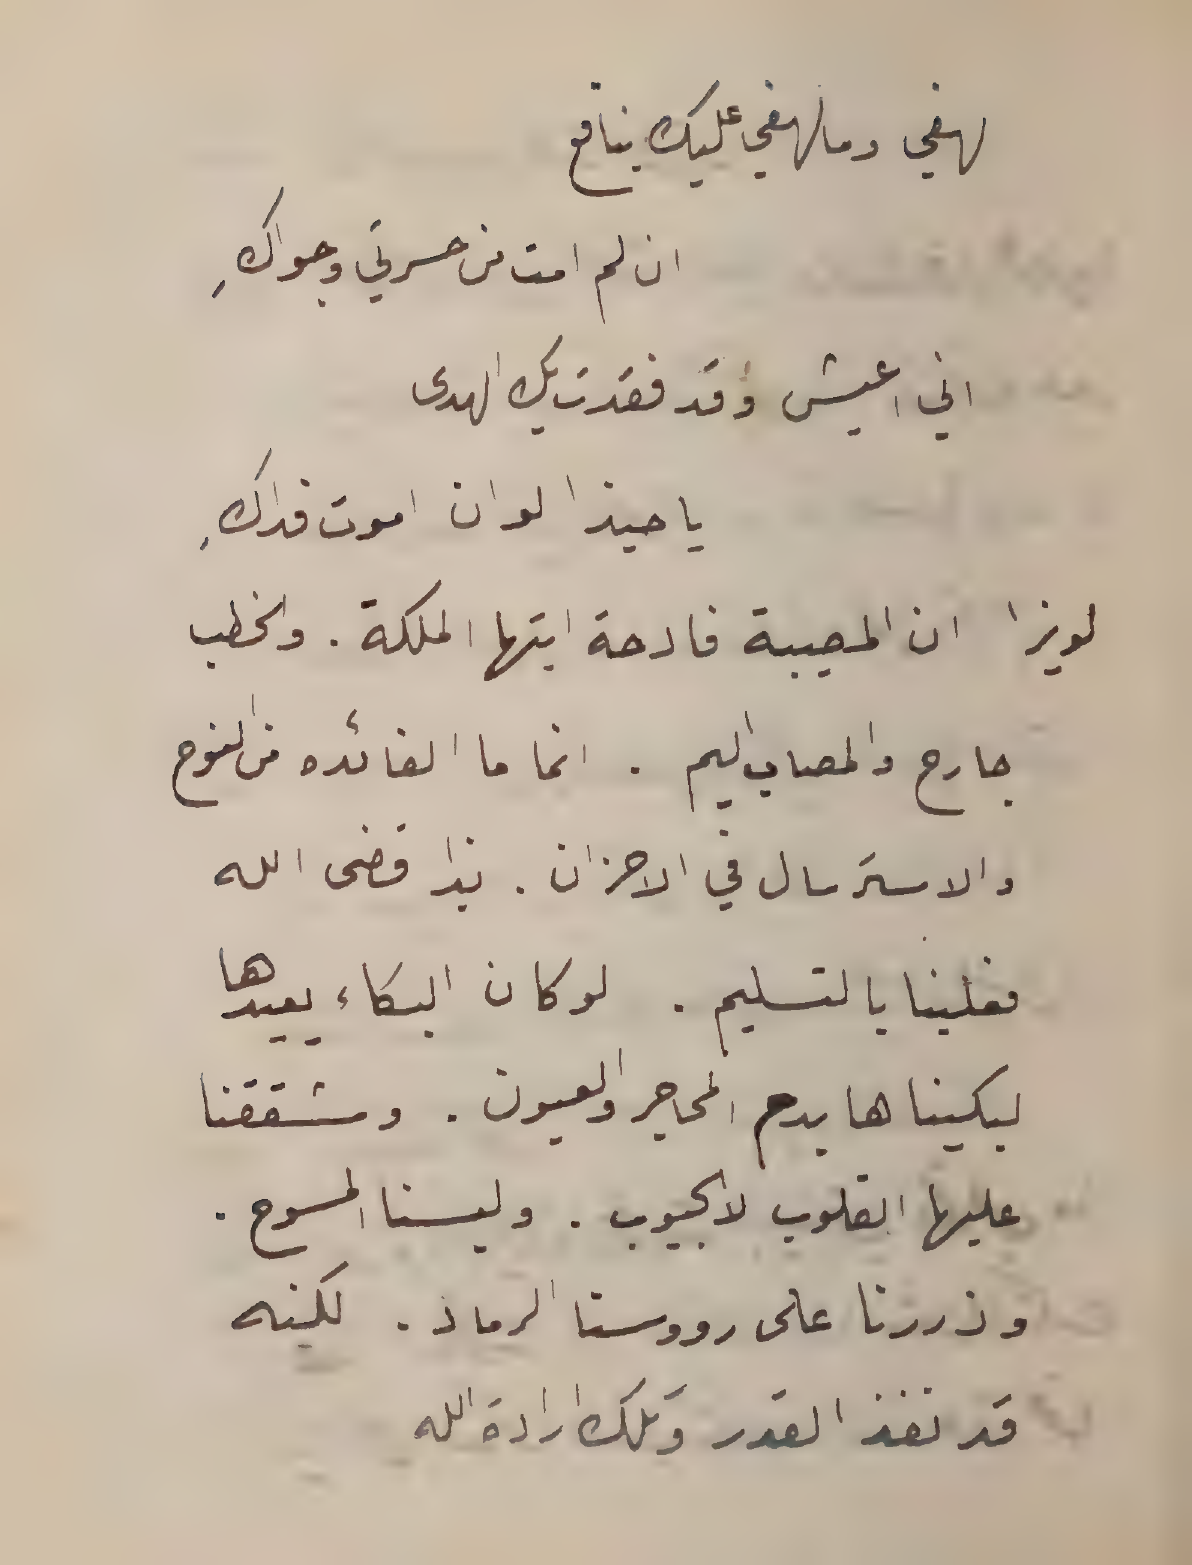 لهفي وما لهفي عليك بنافع
ان لم امت من حسرتي وجواكِ
اني اعيش وقد فقدت بك الهدى
يا حبذا لو ان اموت فداكِ
لويزا ان المصيبة فادحة ايتها الملكة . والخطب
جارح والمصاب اليم . انما ما الفائده من النوح
والاسترسال في الاحزان . بذا قضى الله
فعلينا بالتسليم . لو كان البكاء يعيدها
لبكيناها بدم المحاجر والعيون . وشققنا
عليها القلوب لا الجيوب . ولبسنا المسوح .
وذررنا على رووسنا الرماد . لكنه
قد نفذ القدر وتلك ارادة الله